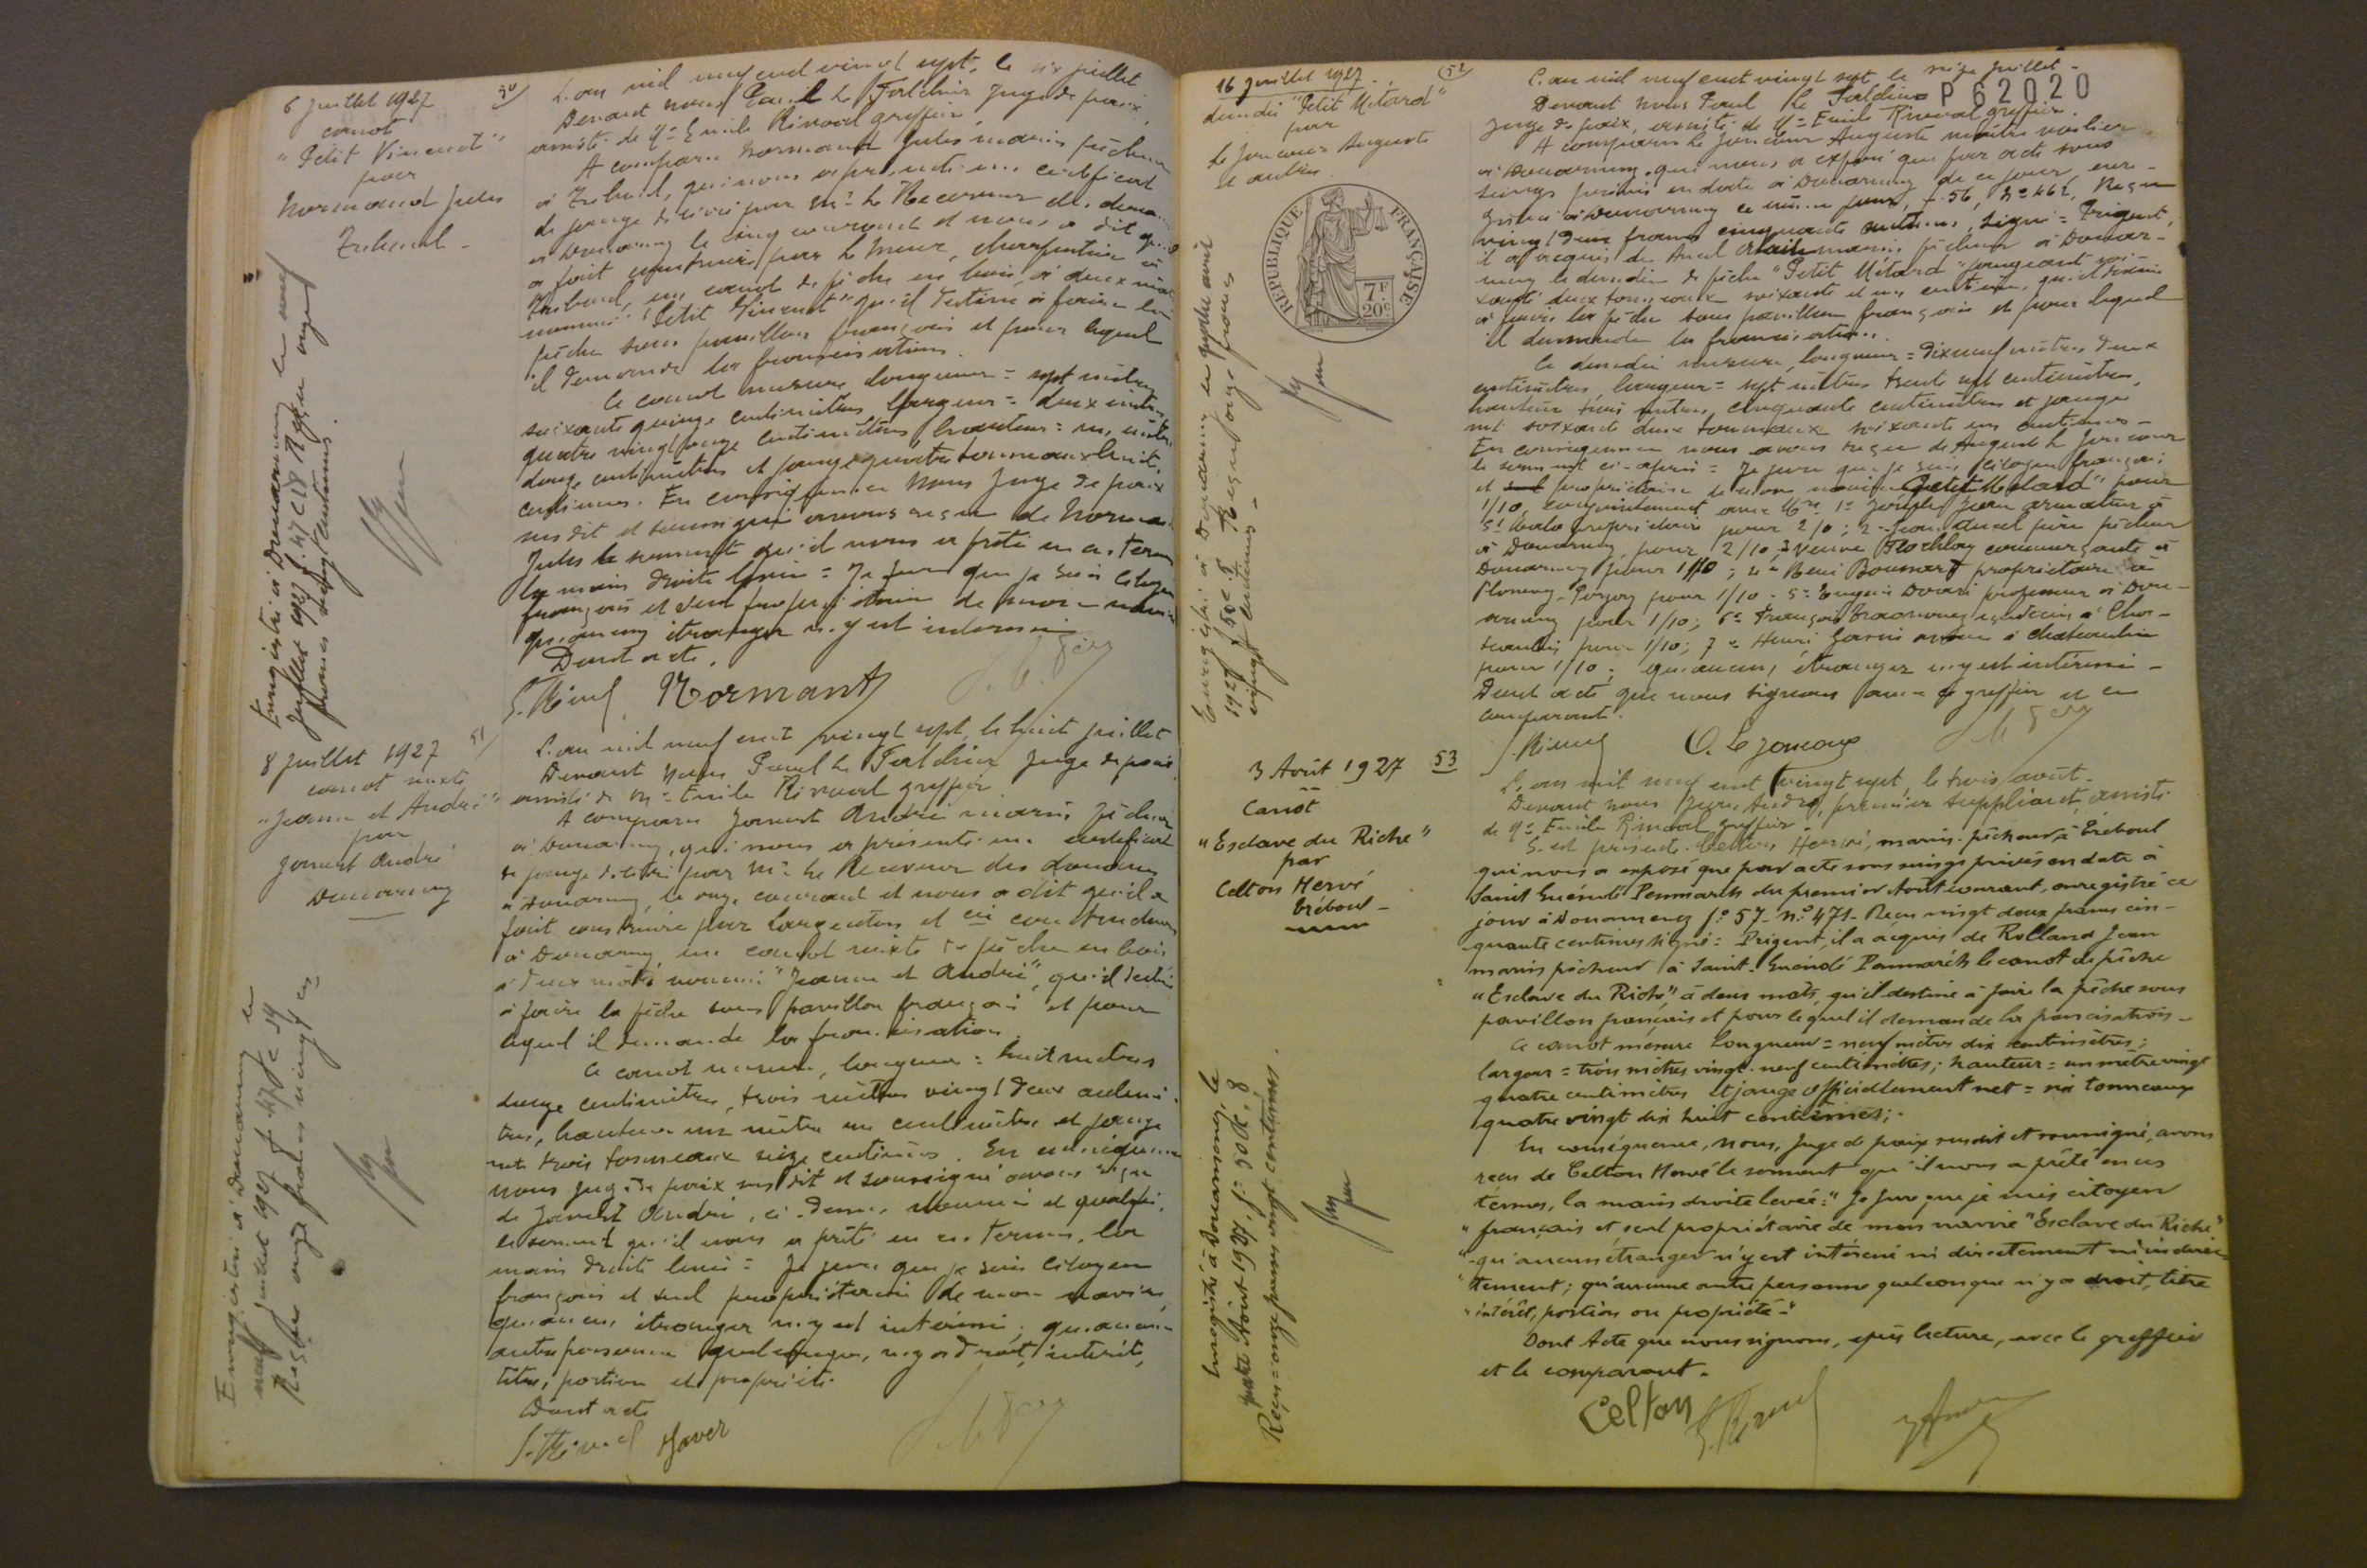 6 Juillet 1927
canot
"Petit Vincent"
par
Normand Jules
Tréboul -
50
L'an mil neuf cent vingt sept, le six juillet
Devant nous Paul Le Juge de paix,
assisté de Me Emile Rinval greffier
A comparu Normant Jules marin pêcheur
à Tréboul, qui nous a présenté un certificat
de jauge délivré par Mr le Receveur des
à Douarnenez le cinq courant et nous a dit qu'il
a fait construire par Le charpentier à
Tréboul, un canot de pêche en bois, à deux mâts
nommé "Petit Vincent" qu'il destine à faire la
pêche sous pavillon français et pour lequel
il demande la francisation.
Ce canot mesure longueur = sept mètres
soixante quinze centimètres largeur = deux mètres
quatre vingt onze centimètres, hauteur = un mètre
douze centimètres et jauge quatre tonneaux huit
centièmes. En conséquence Nous Juge de paix
susdit et soussigné avons reçu de Normant
Jules le serment qu'il nous a prêté en ces termes
la main droite levée = Je jure que je suis citoyen
français et seul propriétaire de mon navire
qu'aucun étranger n'y est intéressé
Dont acte.
Normant
Enregistré à Douarnenez le neuf
Juillet 1927 f. 47 c 18 Reçu onze
francs vingt centimes.
8 Juillet 1927
canot mixte
"Jeanne et André"
par
André
Douarnenez
51
L'an mil neuf cent vingt sept, le huit juillet
Devant Nous Paul Le Juge de paix,
assisté de Me Emile Rinval greffier
A comparu André marin pêcheur
à Douarnenez, qui nous a présenté un certificat
de jauge délivré par Mr le Receveur des douanes
à Douarnenez, le courant et nous a dit qu'il a
fait construire par et Cie constructeurs
à Douarnenez, un canot mixte de pêche en bois
à deux mâts nommé "Jeanne et André", qu'il destine
à faire la pêche sous pavillon français et pour
lequel il demande la francisation
Ce canot mesure, longueur = huit mètres
douze centimètres, trois mètres vingt deux centimè-
tres, hauteur un mètre un centimètre et jauge
net trois tonneaux seize centièmes. En conséquence
nous Juge de paix susdit et soussigné avons reçu
de André, ci-dessus nommé et qualifié,
le serment qu'il nous a prêté en ces termes, la
main droite levée = Je jure que je suis citoyen
français et seul propriétaire de mon navire
qu'aucun étranger n'y est intéressé, qu'aucune
autre personne quelconque, n'y a droit, intérêt,
titre, portion et propriété.
Dont acte
Enregistré à Douarnenez le
neuf juillet 1927 f. 47 c 19
Reçu onze francs vingt ces
16 Juillet 1927
dundée "Petit Métard"
par
Le Joncour Auguste
et autres
52
RÉPUBLIQUE FRANÇAISE
7F
20c
P 62020
L'an mil neuf cent vingt sept le seize juillet -
Devant nous Paul Le
Juge de paix, assisté de Me Emile Rinval greffier.
A comparu Le Joncour Auguste maître voilier
à Douarnenez, qui nous a exposé que par acte sous
seings privés en date à Douarnenez de ce jour, enre-
gistré à Douarnenez ce même jour, f. 56, No 462, Reçu
vingt deux francs cinquante centimes, signé = Prigent,
il a acquis de Ansel Alain marin pêcheur à Douar-
nenez le dundée de pêche "Petit Métard" jaugeant soi-
xante deux tonneaux soixante et un centièmes, qu'il destine
à faire la pêche sous pavillon français et pour lequel
il demande la francisation.
Ce dundée mesure, longueur = dix neuf mètres deux
centimètres, largeur = sept mètres trente sept centimètres,
hauteur trois mètres cinquante centimètres et jauge
net soixante deux tonneaux soixante un centièmes -
En conséquence nous avons reçu de Auguste Le Joncour
le serment ci-après = Je jure que je suis citoyen français
et propriétaire de mon navire "Petit Métard" pour
1/10, conjointement avec Mrs 1° Joseph Jean armateur à
St Malo propriétaire pour 2/10; 2° Jean Ansel père pêcheur
à Douarnenez, pour 2/10; 3° veuve Flochlay commerçante à
Douarnenez pour 1/10; 4° René propriétaire à
pour 1/10 - 5° Eugène professeur à Doua-
rnenez pour 1/10; 6° François médecin à Cha-
teaulin pour 1/10; 7° Henri à Chateaulin
pour 1/10; qu'aucun étranger n'y est intéressé -
Dont acte que nous signons avec le greffier et le
comparant.
A. Le Joncour
Enregistré à Douarnenez le
1927 f. 50 c 5 Reçu onze francs
vingt centimes -
3 Août 1927
Canot
"Esclave du Riche"
par
Celton Hervé
Tréboul -
53
L'an mil neuf cent vingt sept, le trois août -
Devant nous André, premier suppléant, assisté
de Me Emile Rinval greffier -
S'est présenté Celton Hervé, marin-pêcheur à Tréboul
qui nous a exposé que par acte sous seings privés en date à
Saint Guénolé Penmarch du premier Août courant, enregistré ce
jour à Douarnenez f° 57 - n° 471 - Reçu vingt deux francs cin-
quante centimes signé = Prigent, il a acquis de Rolland Jean
marin pêcheur à Saint-Guénolé Penmarch le canot de pêche
"Esclave du Riche", à deux mâts, qu'il destine à faire la pêche sous
pavillon français et pour lequel il demande la francisation -
Ce canot mesure longueur = neuf mètres dix centimètres;
largeur = trois mètres vingt-neuf centimètres; hauteur = un mètre vingt
quatre centimètres et jauge officiellement net = six tonneaux
quatre vingt dix huit centièmes;
En conséquence, nous, Juge de paix susdit et soussigné, avons
reçu de Celton Hervé le serment qu'il nous a prêté en ces
termes, la main droite levée: "Je jure que je suis citoyen
"français et seul propriétaire de mon navire "Esclave du Riche"
"qu'aucun étranger n'y est intéressé ni directement ni indirec-
"tement; qu'aucune autre personne quelconque n'y a droit, titre
"intérêt, portion ou propriété -"
Dont Acte que nous signons, après lecture, avec le greffier
et le comparant.
Celton
Enregistré à Douarnenez, le
quatre Août 1927, f° 50 c. 8
Reçu = onze francs vingt centimes.